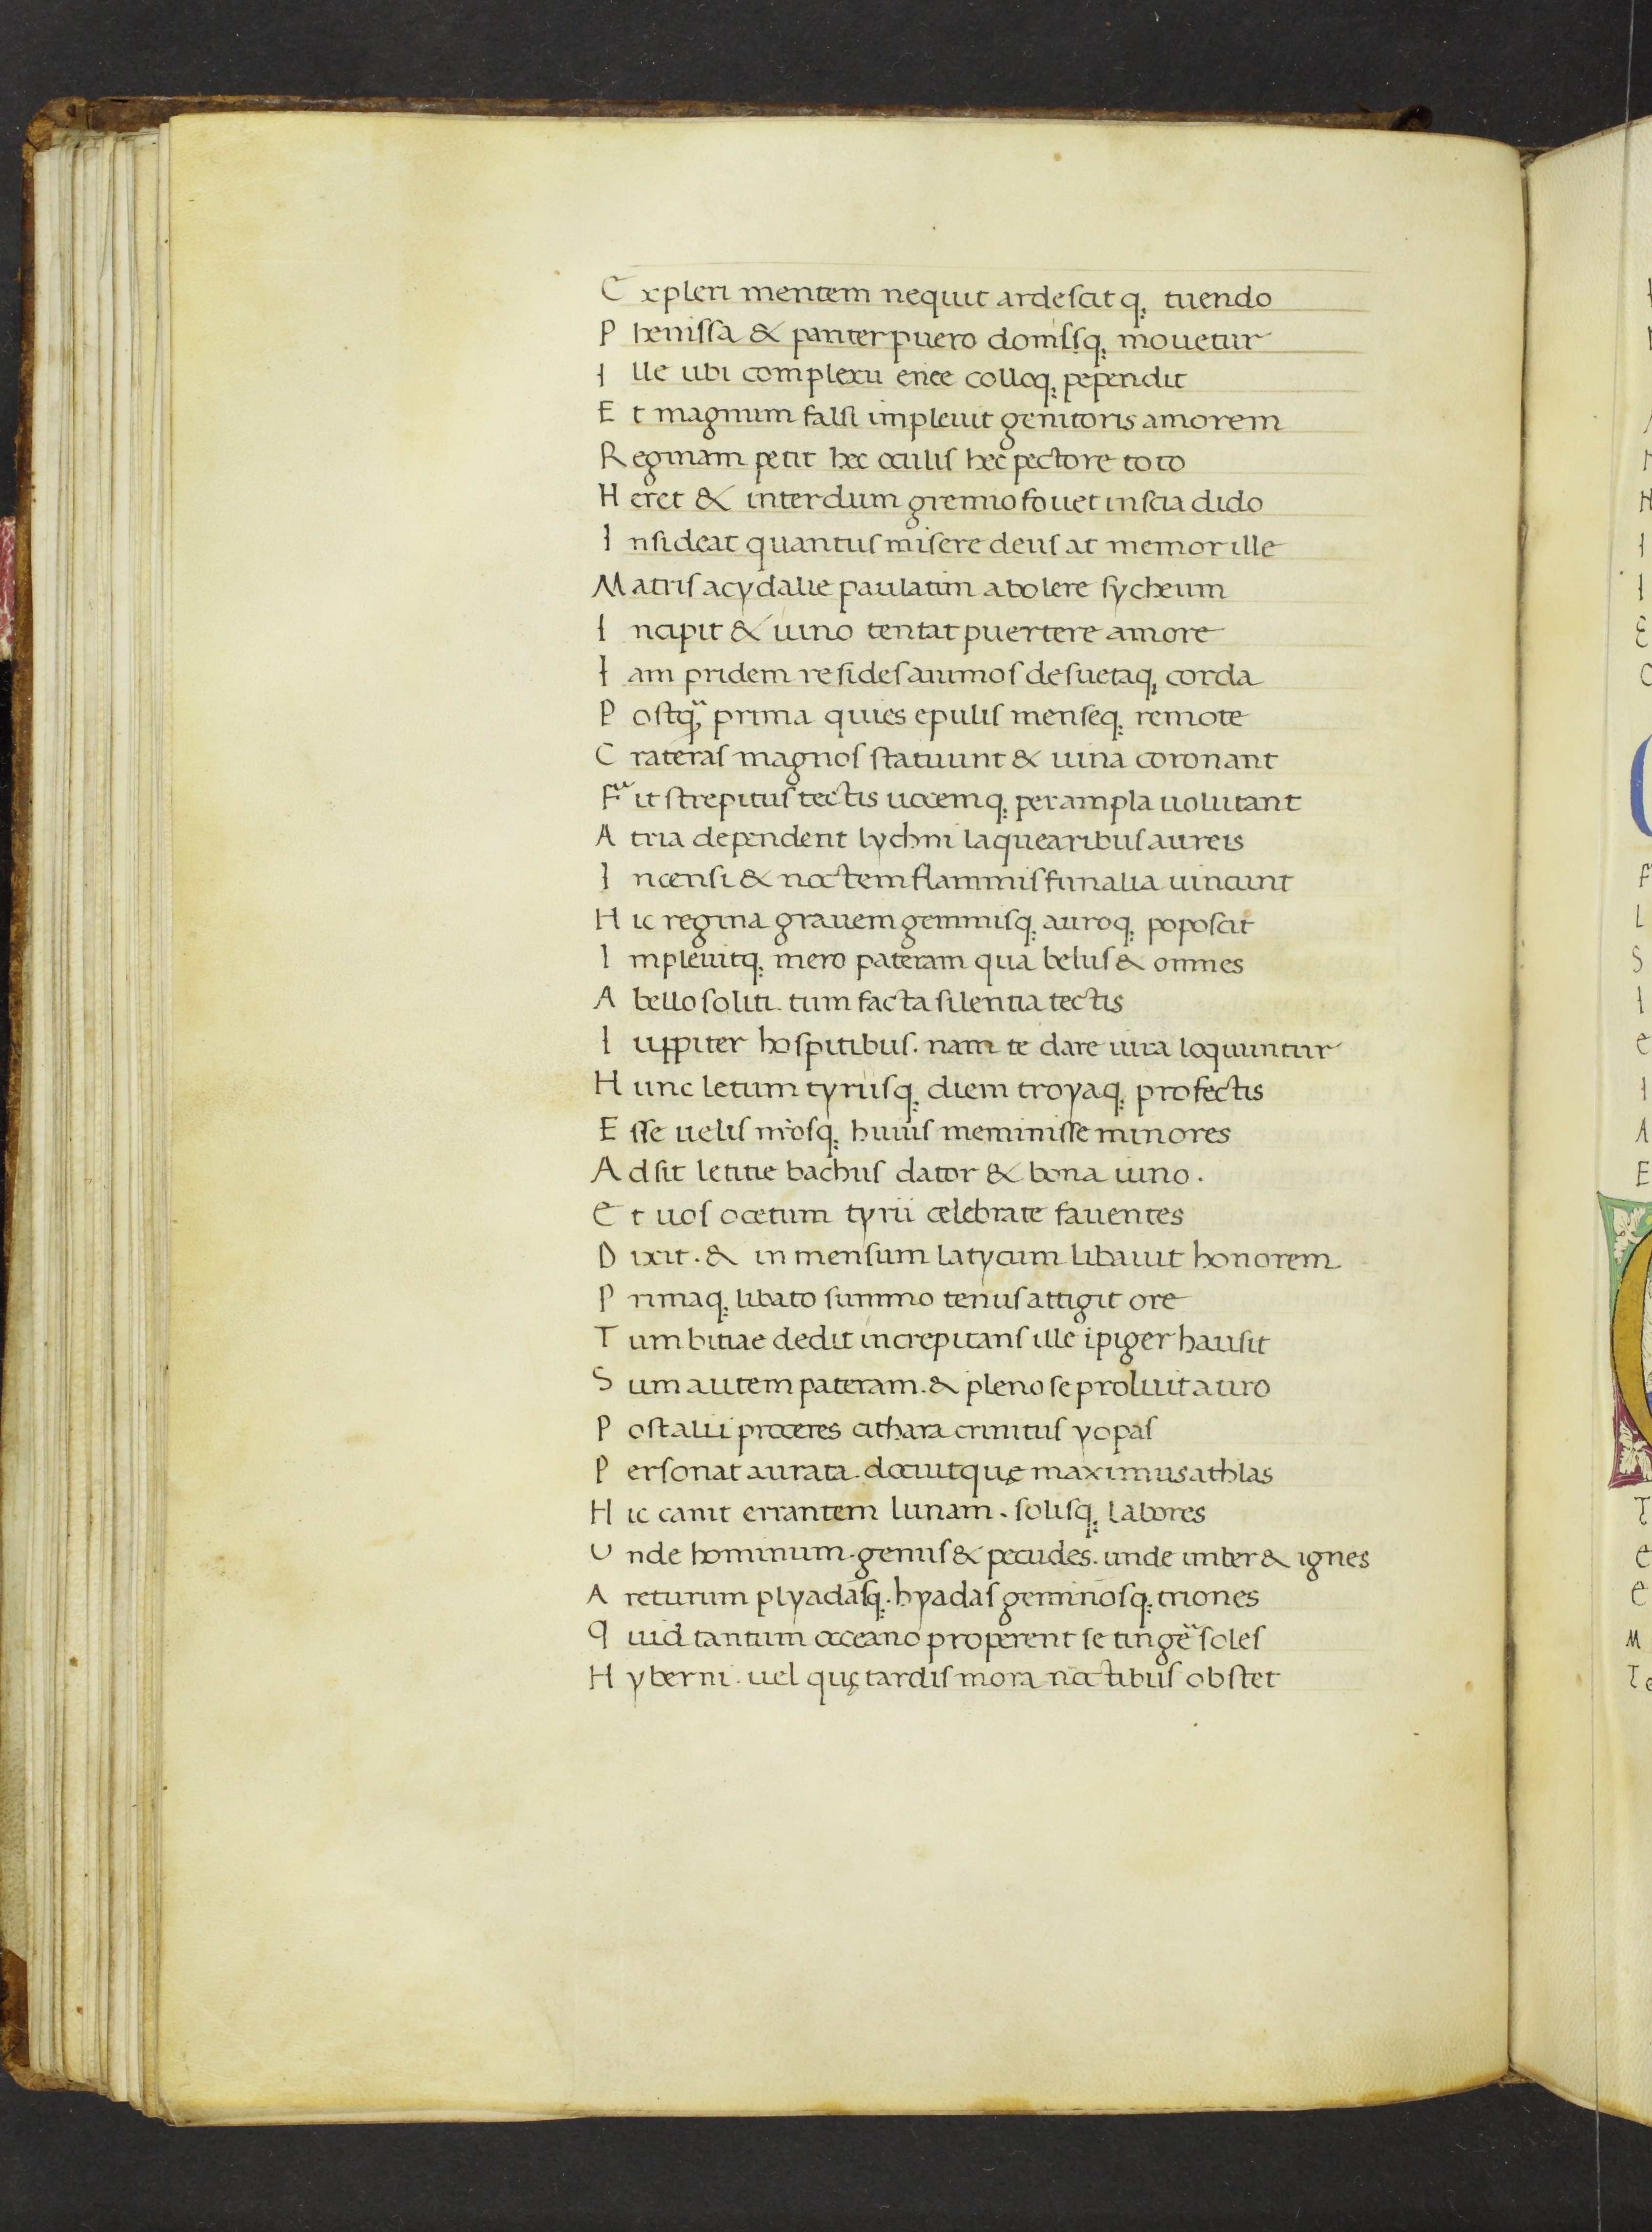 Expleri mentem nequit ardescitq; tuendo
Phenissa & pariter puero domisq; mouetur
Ille ubi complexu enee colloq; pependit
Et magnum falsi impleuit genitoris amorem
Reginam petit hec oculis hec pectore toto
Heret & interdum gremio fouet inscia dido
Insideat quantus misere deus at memor ille
Matris acydalie paulatim abolere sycheum
Incipit & uiuo tentat puertere amore
Iam pridem resides animos desuetaq; corda
Postq̃ prima quies epulis menseq; remote
Crateras magnos statuunt & uina coronant
Fit strepitus tectis uocemq; per ampla uolutant
Atria dependent lychni laquearibus aureis
Incensi & noctem flammis funalia uincunt
Hic regina grauem gemmisq; auroq; poposcit
Impleuitq; mero pateram qua belus & omnes
A bello soliti. tum facta silentia tectis
Iuppiter hospitibus. nam te dare iura loquuntur
Hunc letum tyriisq; diem troyaq; profectis
Esse uelis nr̃osq; huius meminisse minores
Adsit letitie bachus dator & bona iuno.
Et uos ocetum tyrii celebrate fauentes
Dixit. & in mensum latycum libauit honorem
Primaq; libato summo tenus attigit ore
Tum bitiae dedit increpitans ille ipiger hausit
Sum autem pateram. & pleno se proluit auro
Post alii proceres cithara crinitus yopas
Personat aurata. docuitquę maximus athlas
Hic canit errantem lunam. solisq; labores
Unde hominum. genus & pecudes. unde imber & ignes
Areturum plyadasq;. hyadas geminosq; triones
Quid tantum occeano properent se tingẽ soles
Hyberni. uel quę tardis mora noctibus obstet